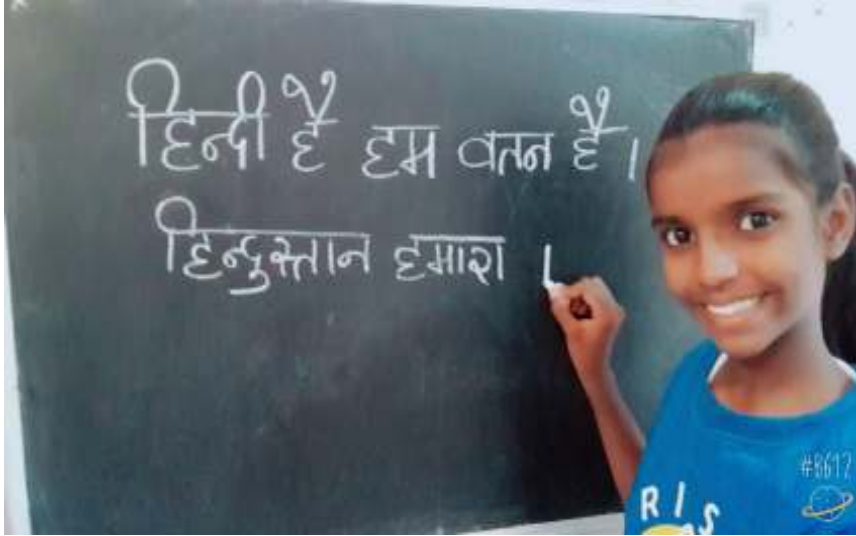 हिन्दी है हम वतन है।
हिन्दुस्तान हमारा ।
RIS
#B612